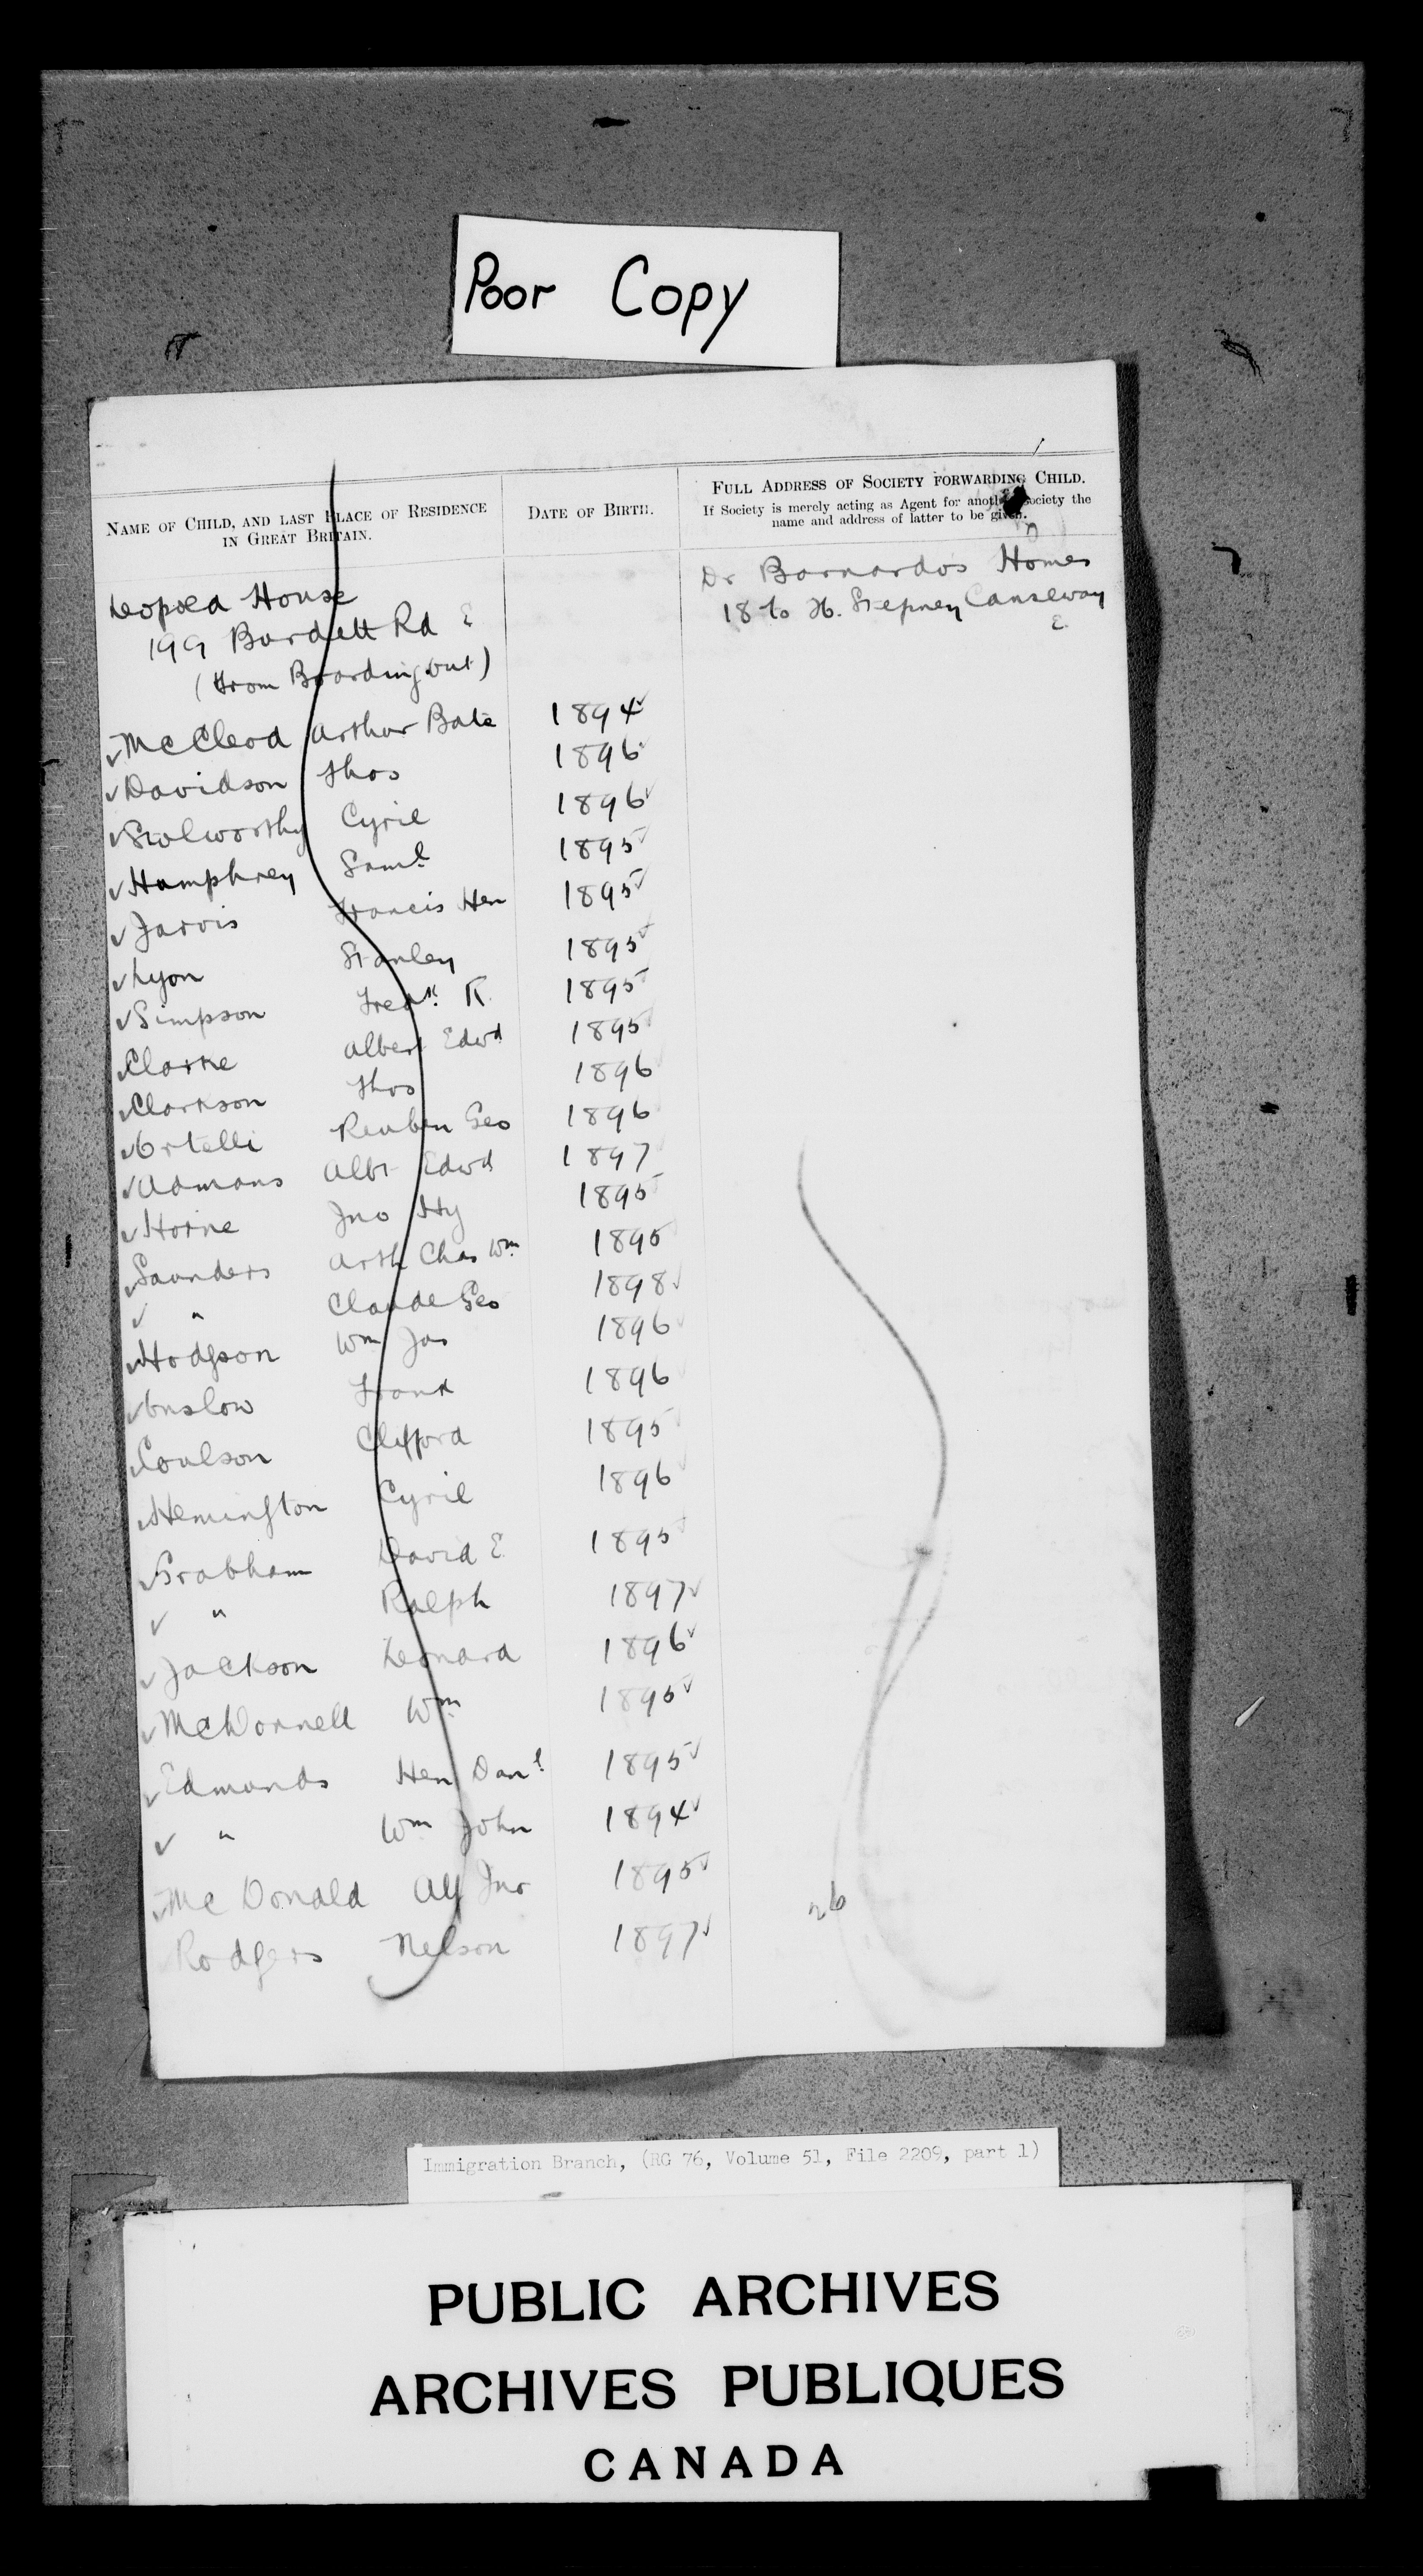 Poor Copy
NAME OF CHILD, AND LAST PLACE OF RESIDENCE
IN GREAT BRITAIN.
DATE OF BIRTH.
FULL ADDRESS OF SOCIETY FORWARDING CHILD.
If Society is merely acting as Agent for another Society the
name and address of latter to be given.
Leopold House
199 Burdett Rd E
(From Boarding out)
Dr Barnardo's Homes
18 to 26. Stepney Causeway
E.
McCleod Arthur Bate 1894
Davidson Thos 1896
Stolworthy Cyril 1896
Humphrey Saml 1895
Jarvis Francis Hen 1895
Lyon Stanley 1895
Simpson Fredk R. 1895
Clarke Albert Edwd 1895
Clarkson Thos 1896
Ortelli Reuben Geo 1896
Admans Albt Edwd 1897
Horne Jno Hy 1895
Saunders Arth Chas Wm 1895
" Claude Geo 1898
Hodgson Wm Jas 1896
Onslow Frank 1896
Coulson Clifford 1895
Hemington Cyril 1896
Brabham David E 1895
" Ralph 1897
Jackson Leonard 1896
McDonnell Wm 1895
Edmunds Hen Danl 1895
" Wm John 1894
McDonald Alf Jno 1895
Rodgers Nelson 1897
26
Immigration Branch, (RG 76, Volume 51, File 2209, part 1)
PUBLIC ARCHIVES
ARCHIVES PUBLIQUES
CANADA